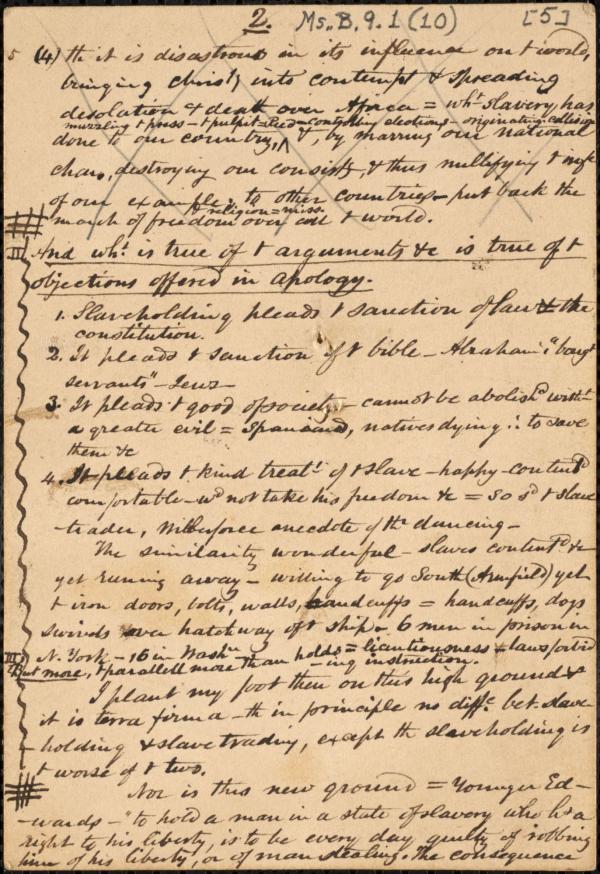 2. Ms. B. 9.1 (10) [5]
5 (4) th it is disastrous in its influence on t world,
bringing Christy into contempt & spreading
desolation & death over Africa = wht slavery has
muzzling t press - t pulpit - controlling elections - originating collision
done to our country, ^ &, by marring our national
char, destroying our consisty, & thus nullifying t infl
of our example, to other countries - put back the
t religion = miss.
march of freedom over all t world.
II And wht is true of t arguments &c is true of t
objections offered in apology.
1. Slaveholding pleads t sanction of law & the
constitution.
2. It pleads t sanction of t bible - Abraham "bougt
servants" - Jews -
3. It pleads t good of society - cannot be abolishd witht
a greater evil = Spaniard, natives dying ∴ to save
them &c
4. It pleads t kind treatt of t slave - happy - contentd
comfortable - wd not take his freedom &c = So sd t slave
trader, Wilberforce anecdote of th dancing -
The similarity wonderful - slaves contentd &c
yet running away - willing to go South (Armfield) yet
t iron doors, bolts, walls, handcuffs = handcuffs, dogs
swivels over hatchway of t ship - 6 men in prison in
N. York - 16 in Washn
III but more, t parallel more than holds = licentiousness + laws forbid
-ing instruction.
I plant my foot then on this high ground &
it is terra firma - th in principle no diffc bet. slave-
-holding & slave trading, except th slaveholding is
t worse of t two.
Nor is this new ground = Younger Ed-
-wards - "to hold a man in a state of slavery who hs a
right to his liberty, is to be every day guilty of robbing
him of his liberty, or of man stealing. The consequence